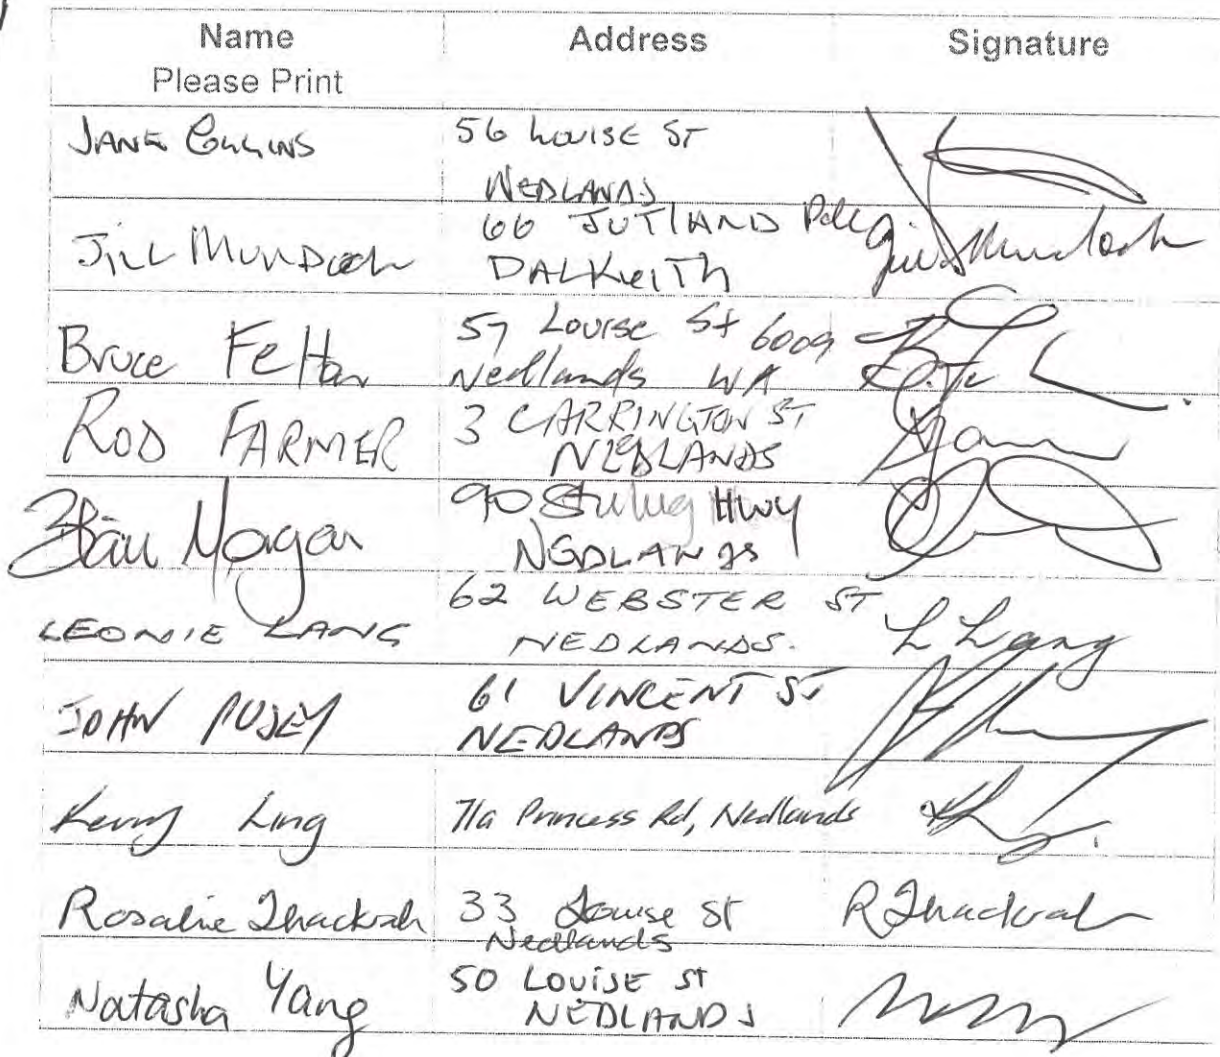 Name Address Signature
Please Print
JANE COLLINS 56 LOUISE ST
NEDLANDS
JILL MURDOCH 66 JUTLAND Pde Jill Murdoch
DALKEITH
Bruce Felton 57 Louise St 6009
Nedlands WA
ROD FARMER 3 CARRINGTON ST
NEDLANDS
Morgan 90 Stirling HWY
NEDLANDS
LEONIE LANG 62 WEBSTER ST L Lang
NEDLANDS.
JOHN PUSEY 61 VINCENT ST
NEDLANDS
Kerry King 71a Princess Rd, Nedlands
Rosalie Thackrah 33 Louise St R Thackrah
Nedlands
Natasha Yang 50 LOUISE ST
NEDLANDS